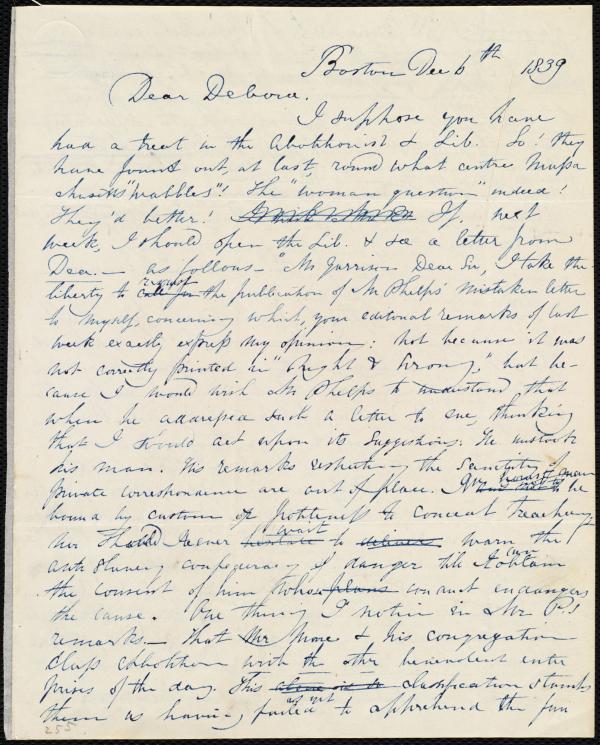 Boston Dec 6th 1839
Dear Debora.
I suppose you have
had a treat in the Abolitionist & Lib. So! they
have found out, at last, round what centre Massa
chusetts "wabbles"! The "woman question" indeed!
They'd better! If, next
week, I should open the Lib. & see a letter from
Dea. — as follows — "Mr Garrison Dear Sir, I take the
liberty to request the publication of Mr Phelps' mistaken letter
to myself, concerning which, your editorial remarks of last
week exactly express my opinion: not because it was
not correctly printed in "Right & Wrong," but be-
cause I would wish Mr Phelps to understand that
when he addressed such a letter to me, thinking
that I should act upon its suggestions, he mistook
his man. His remarks respecting the sanctity of
private correspondence are out of place. be
bound by custom or politeness to conceal treachery
nor should I ever wait to warn the
anti slavery confederacy of danger till I can obtain
the consent of him whose conduct endangers
the cause. One thing I notice in Mr P.'s
remarks — That Mr & his congregation
class abolition with the other benevolent enter
prises of the day. This classification stamps
them as having as yet failed to apprehend the fun
255.